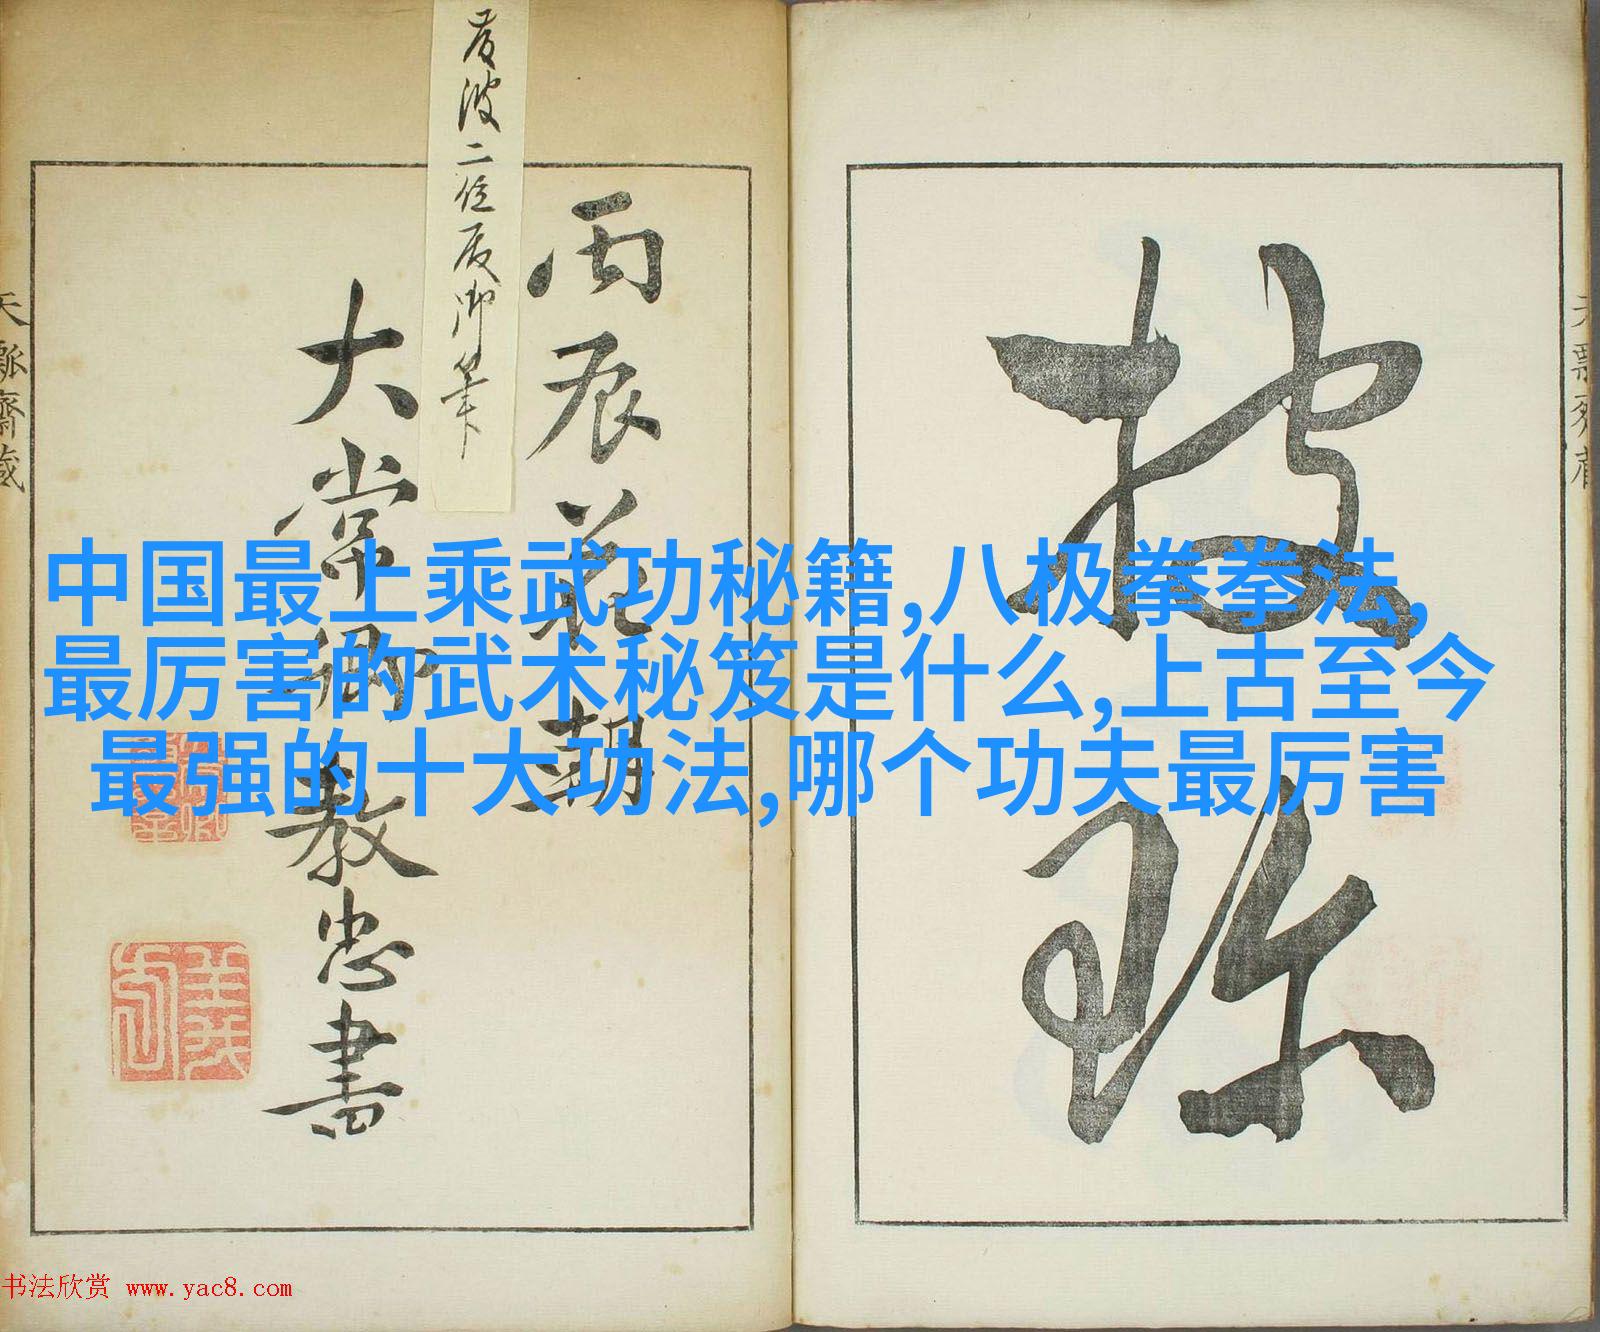 中国最上乘武功秘籍,八极拳拳法,
最厉害的武术秘笈是什么,上古至今
最强的十大功法,哪个功夫最厉害
披
丙辰花朝
大常卿教忠書
二位殿御筆
天瓢齋蔵
书法欣赏 www.yac8.com